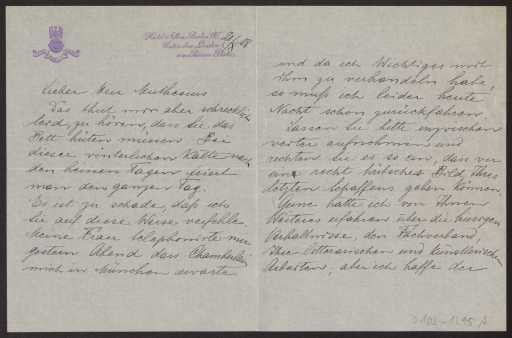 Hotel Adlon, Berlin W.
Unter den Linden 1
am Pariser Platz
Lieber Herr Muthesius
Das thut mir aber schrecklich
leid, zu hören, dass Sie das
Bett hüten müssen. Bei
dieser winterlichen Kälte nach
den heissen Tagen friert
man den ganzen Tag.
Es ist zu schade, daß ich
Sie auf diese Weise verfehle.
Meine Frau telephonirte mir
gestern Abend dass Chamberlain
mich in München erwarte
und da ich Wichtiges mit
ihm zu verhandeln habe,
so muß ich leider heute
Nacht schon zurückfahren.
Lassen Sie bitte inzwischen
weiter aufnehmen und
richten Sie es so ein, dass wir
ein recht hübsches Bild Ihres
letzten Schaffens geben können.
Gerne hätte ich von Ihnen
Weiteres erfahren über die hiesigen
Verhältnisse, den Fachverband,
Ihre litterarischen und künstlerischen
Arbeiten, aber ich hoffe der